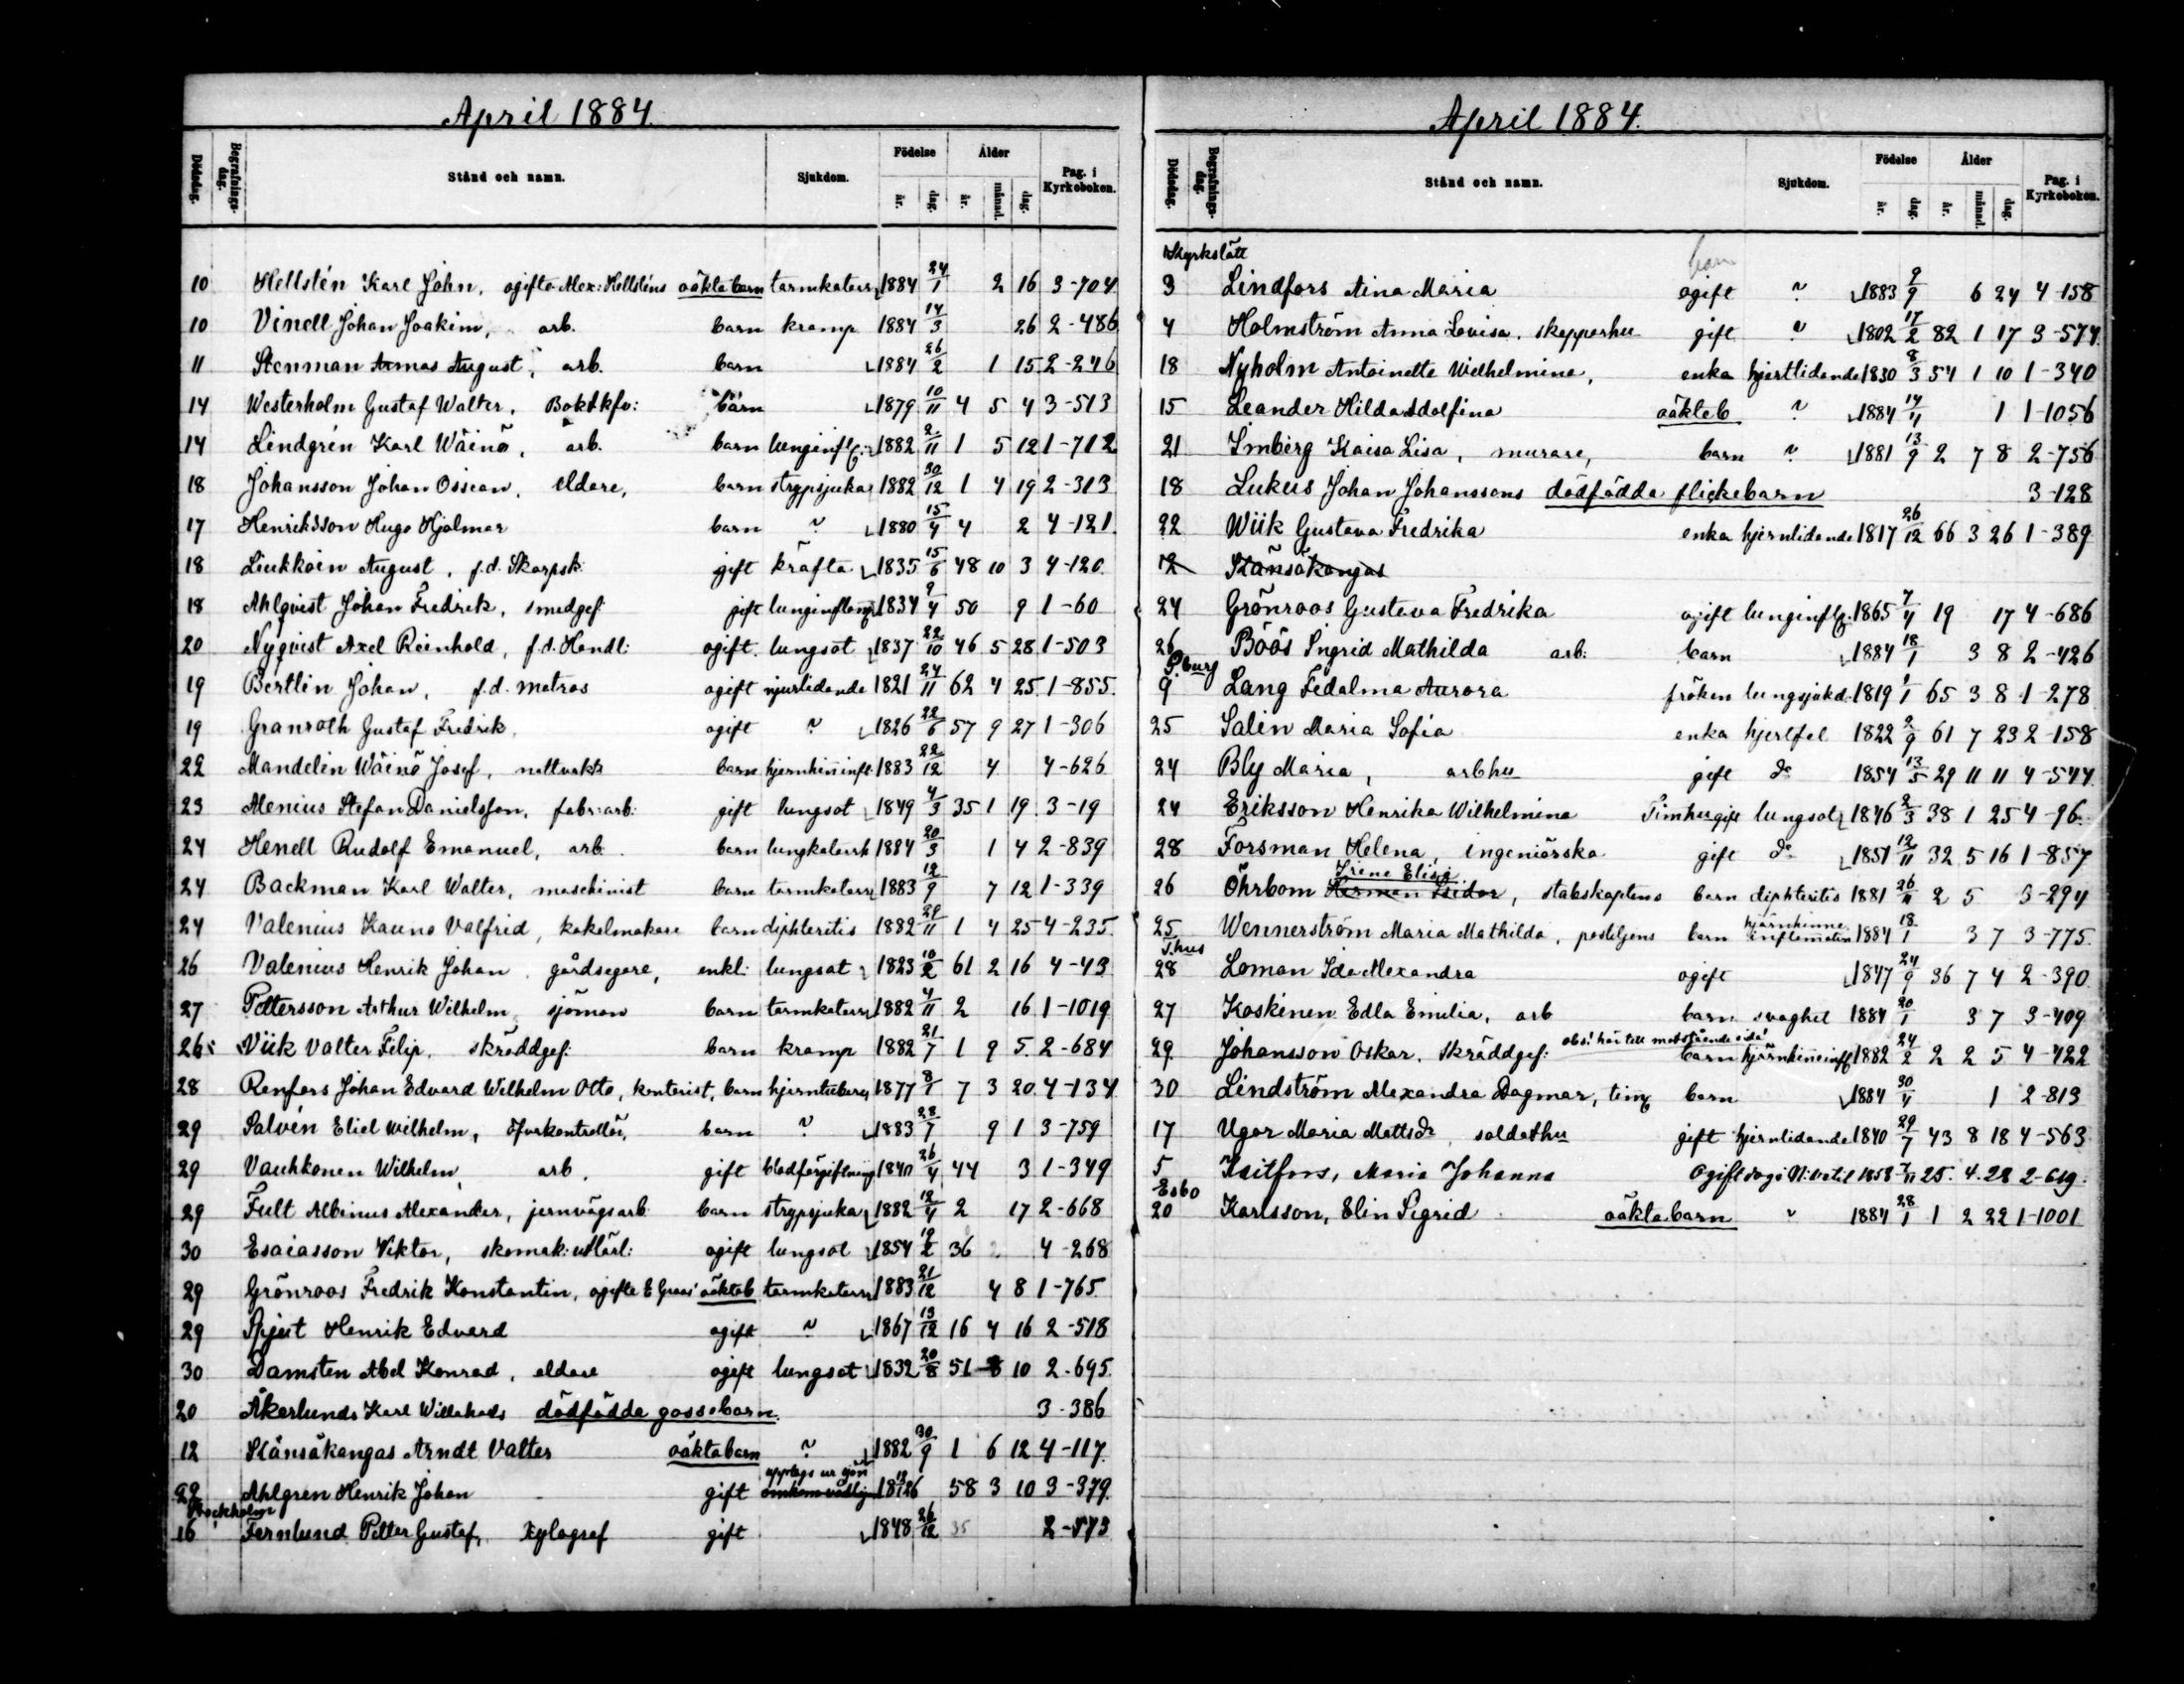 April 1884.
Dödsdag. Begrafnings-dag. Stånd och namn. Sjukdom. Födelse år. dag. Ålder år. månad. dag. Pag. i Kyrkoboken.
10 Hellstén Karl John, ogifta Alex: Hellsténs oäkta barn tarmkatarr 1884 24/1 2 16 3-704
10 Vinell Johan Joakim, arb. barn kramp 1884 14/3 26 2-486
11 Stenman Armas August, arb. barn 1884 26/2 1 15 2-246
14 Westerholm Gustaf Walter, Boktkfv: barn 1879 10/11 4 5 4 3-513
14 Lindgrén Karl Wäinö, arb. barn lunginfl: 1882 2/11 1 5 12 1-712
18 Johansson Johan Ossian, eldare, barn strypsjuka 1882 30/12 1 4 19 2-313
17 Henriksson Hugo Hjalmar barn ~ 1880 15/4 4 2 4-121.
18 Liukkoin August, f.d. Skarpsk: gift kräfta 1835 15/6 48 10 3 4-120.
18 Ahlqvist Johan Fredrik, smedgef: gift lunginflam 1834 9/4 50 9 1-60
20 Nyqvist Axel Reinhold, f.d. Handl: ogift. lungsot 1837 22/10 46 5 28 1-503
19 Bertlin Johan, f.d. matros ogift njurlidande 1821 24/11 62 4 25. 1-855.
19 Granroth Gustaf Fredrik, ogift ~ 1826 22/6 57 9 27 1-306
22 Mandelin Wäinö Josef, nattvakts barn hjernhin infl. 1883 22/12 4 4-626
23 Alenius Stefan Danielsson, fabr: arb: gift lungsot 1849 4/3 35 1 19. 3-19
24 Henell Rudolf Emanuel, arb. barn lungkatarrh 1884 20/3 1 4 2-839
24 Backman Karl Walter, maschinist barn tarmkatarr 1883 12/9 7 12 1-339
24 Valenius Kauno Valfrid, kakelmakare barn diphteritis 1882 29/11 1 4 25 4-235.
26 Valenius Henrik Johan, gårdsegare, enkl: lungsot 1823 10/2 61 2 16 4-43
27 Pettersson Arthur Wilhelm, sjöman barn tarmkatarr 1882 4/11 2 16 1-1019
26 Viik Valter Filip, skräddgef: barn kramp 1882 21/7 1 9 5. 2-684
28 Renfors Johan Edvard Wilhelm Otto, kontorist, barn hjerntuberc 1877 8/1 7 3 20. 4-134
29 Salvén Eliel Wilhelm, barn ~ 1883 28/7 9 1 3-759
29 Vauhkonen Wilhelm, arb. gift blodförgiftning 1840 26/4 44 3 1-349
29 Fult Albinus Alexander, jernvägsarb. barn strypsjuka 1882 12/4 2 17 2-668
30 Esaiasson Viktor, skomak: utlärl: ogift lungsot 1854 12/2 36 4-268
29 Grönroos Fredrik Konstantin, ogifta E Groos' oäktab tarmkatarr 1883 21/12 4 8 1-765
29 Spjut Henrik Edvard ogift ~ 1867 13/12 16 4 16 2-518
30 Damsten Abel Konrad, eldare ogift lungsot 1832 20/8 51 8 10 2-695.
20 Åkerlunds Karl Willehads dödfödda gossebarn. 3-386
12 Känsäkangas Arndt Valter oäkta barn ~ 1882 30/9 1 6 12 4-117.
22 Ahlgren Henrik Johan gift upptags ur sjön 1826 58 3 10 3-379.
Stockholm
16 Fernlund Petter Gustaf, Xylograf gift 1848 26/12 35 2-573
April 1884.
Dödsdag. Begrafnings-dag. Stånd och namn. Sjukdom. Födelse år. dag. Ålder år. månad. dag. Pag. i Kyrkoboken.
Kyrkslätt
barn
3 Lindfors Aina Maria ogift ~ 1883 9/9 6 24 4-158
4 Holmström Anna Lovisa, skepparhu gift ~ 1802 17/2 82 1 17 3-574.
18 Nyholm Antoinette Wilhelmina, enka hjertlidande 1830 8/3 54 1 10 1-340
15 Leander Hilda Adolfina oäkteb ~ 1884 14/4 1 1-1056
21 Imberg Kaisa Lisa, murare, barn ~ 1881 13/9 2 7 8 2-756
18 Lukus Johan Johanssons dödfödda flickebarn 3-128
22 Wiik Gustava Fredrika enka hjernlidande 1817 26/12 66 3 26 1-389
12 Känsäkangas
24 Grönroos Gustava Fredrika ogift lunginfl. 1865 7/4 19 17 4-686
26 Böös Ingrid Mathilda arb: barn 1884 18/1 3 8 2-426
P.burg
9 Lang Fedalma Aurora fröken lungsjukd. 1819 1/1 65 3 8 1-278
25 Salin Maria Sofia enka hjertfel 1822 2/9 61 7 23 2-158
24 Bly Maria, arbhu gift do 1854 13/5 29 11 11 4-544.
24 Eriksson Henrika Wilhelmina Timhu gift lungsot 1846 2/3 38 1 25 4-96.
28 Forsman Helena, ingeniörska gift do 1851 12/11 32 5 16 1-857
Irene Elise
26 Öhrbom Herman Isidor, stabskaptens barn diphteritis 1881 26/11 2 5 3-294
25 Wennerström Maria Mathilda, postiljons barn hjärnhinne inflamation 1884 18/1 3 7 3-775.
T.hus
28 Loman Ida Alexandra ogift 1847 24/9 36 7 4 2-390
27 Koskinen Edla Emilia, arb barn svaghet 1884 20/1 3 7 3-409
obs! hör till motstående sida!
29 Johansson Oskar, Skräddgef: barn hjärnhinneinfl 1882 24/2 2 2 5 4-422
30 Lindström Alexandra Dagmar, tim barn 1884 30/4 1 2-813
17 Ugor Maria Mattsdr, soldathu gift hjernlidande 1840 29/7 43 8 18 4-563
5 Kaitfors, Maria Johanna ogift 1858 7/11 25. 4. 28 2-619.
Esbo
20 Karlsson, Elin Sigrid oäkta barn ~ 1884 28/1 1 2 22 1-1001